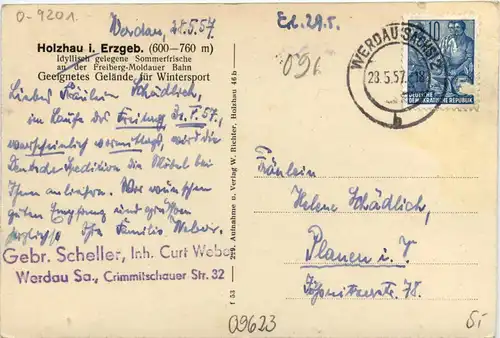 0-9201
Werdau, 28.5.57.
Erl. 29.5.
Holzhau i. Erzgeb. (600—760 m)
Idyllisch gelegene Sommerfrische
an der Freiberg-Moldauer Bahn
Geeignetes Gelände für Wintersport
Liebes Fräulein Schädlich,
im Laufe des Freitag, 31.5.57.,
wahrscheinlich vormittags, wird die
Deutsche Spedition die Möbel bei
Ihnen anliefern. Wir wünschen
guten Empfang und grüßen
herzlichst Ihre Familie Weber.
Gebr. Scheller, Inh. Curt Weber
Werdau Sa., Crimmitschauer Str. 32
f 53 299. Aufnahme u. Verlag W. Richter, Holzhau 46 b
096
WERDAU (SACHS)
28.5.57 18
b
10
DEUTSCHE
DEMOKRATISCHE REPUBLIK
Fräulein
Helene Schädlich,
Plauen i. V.
78.
09623
5,-